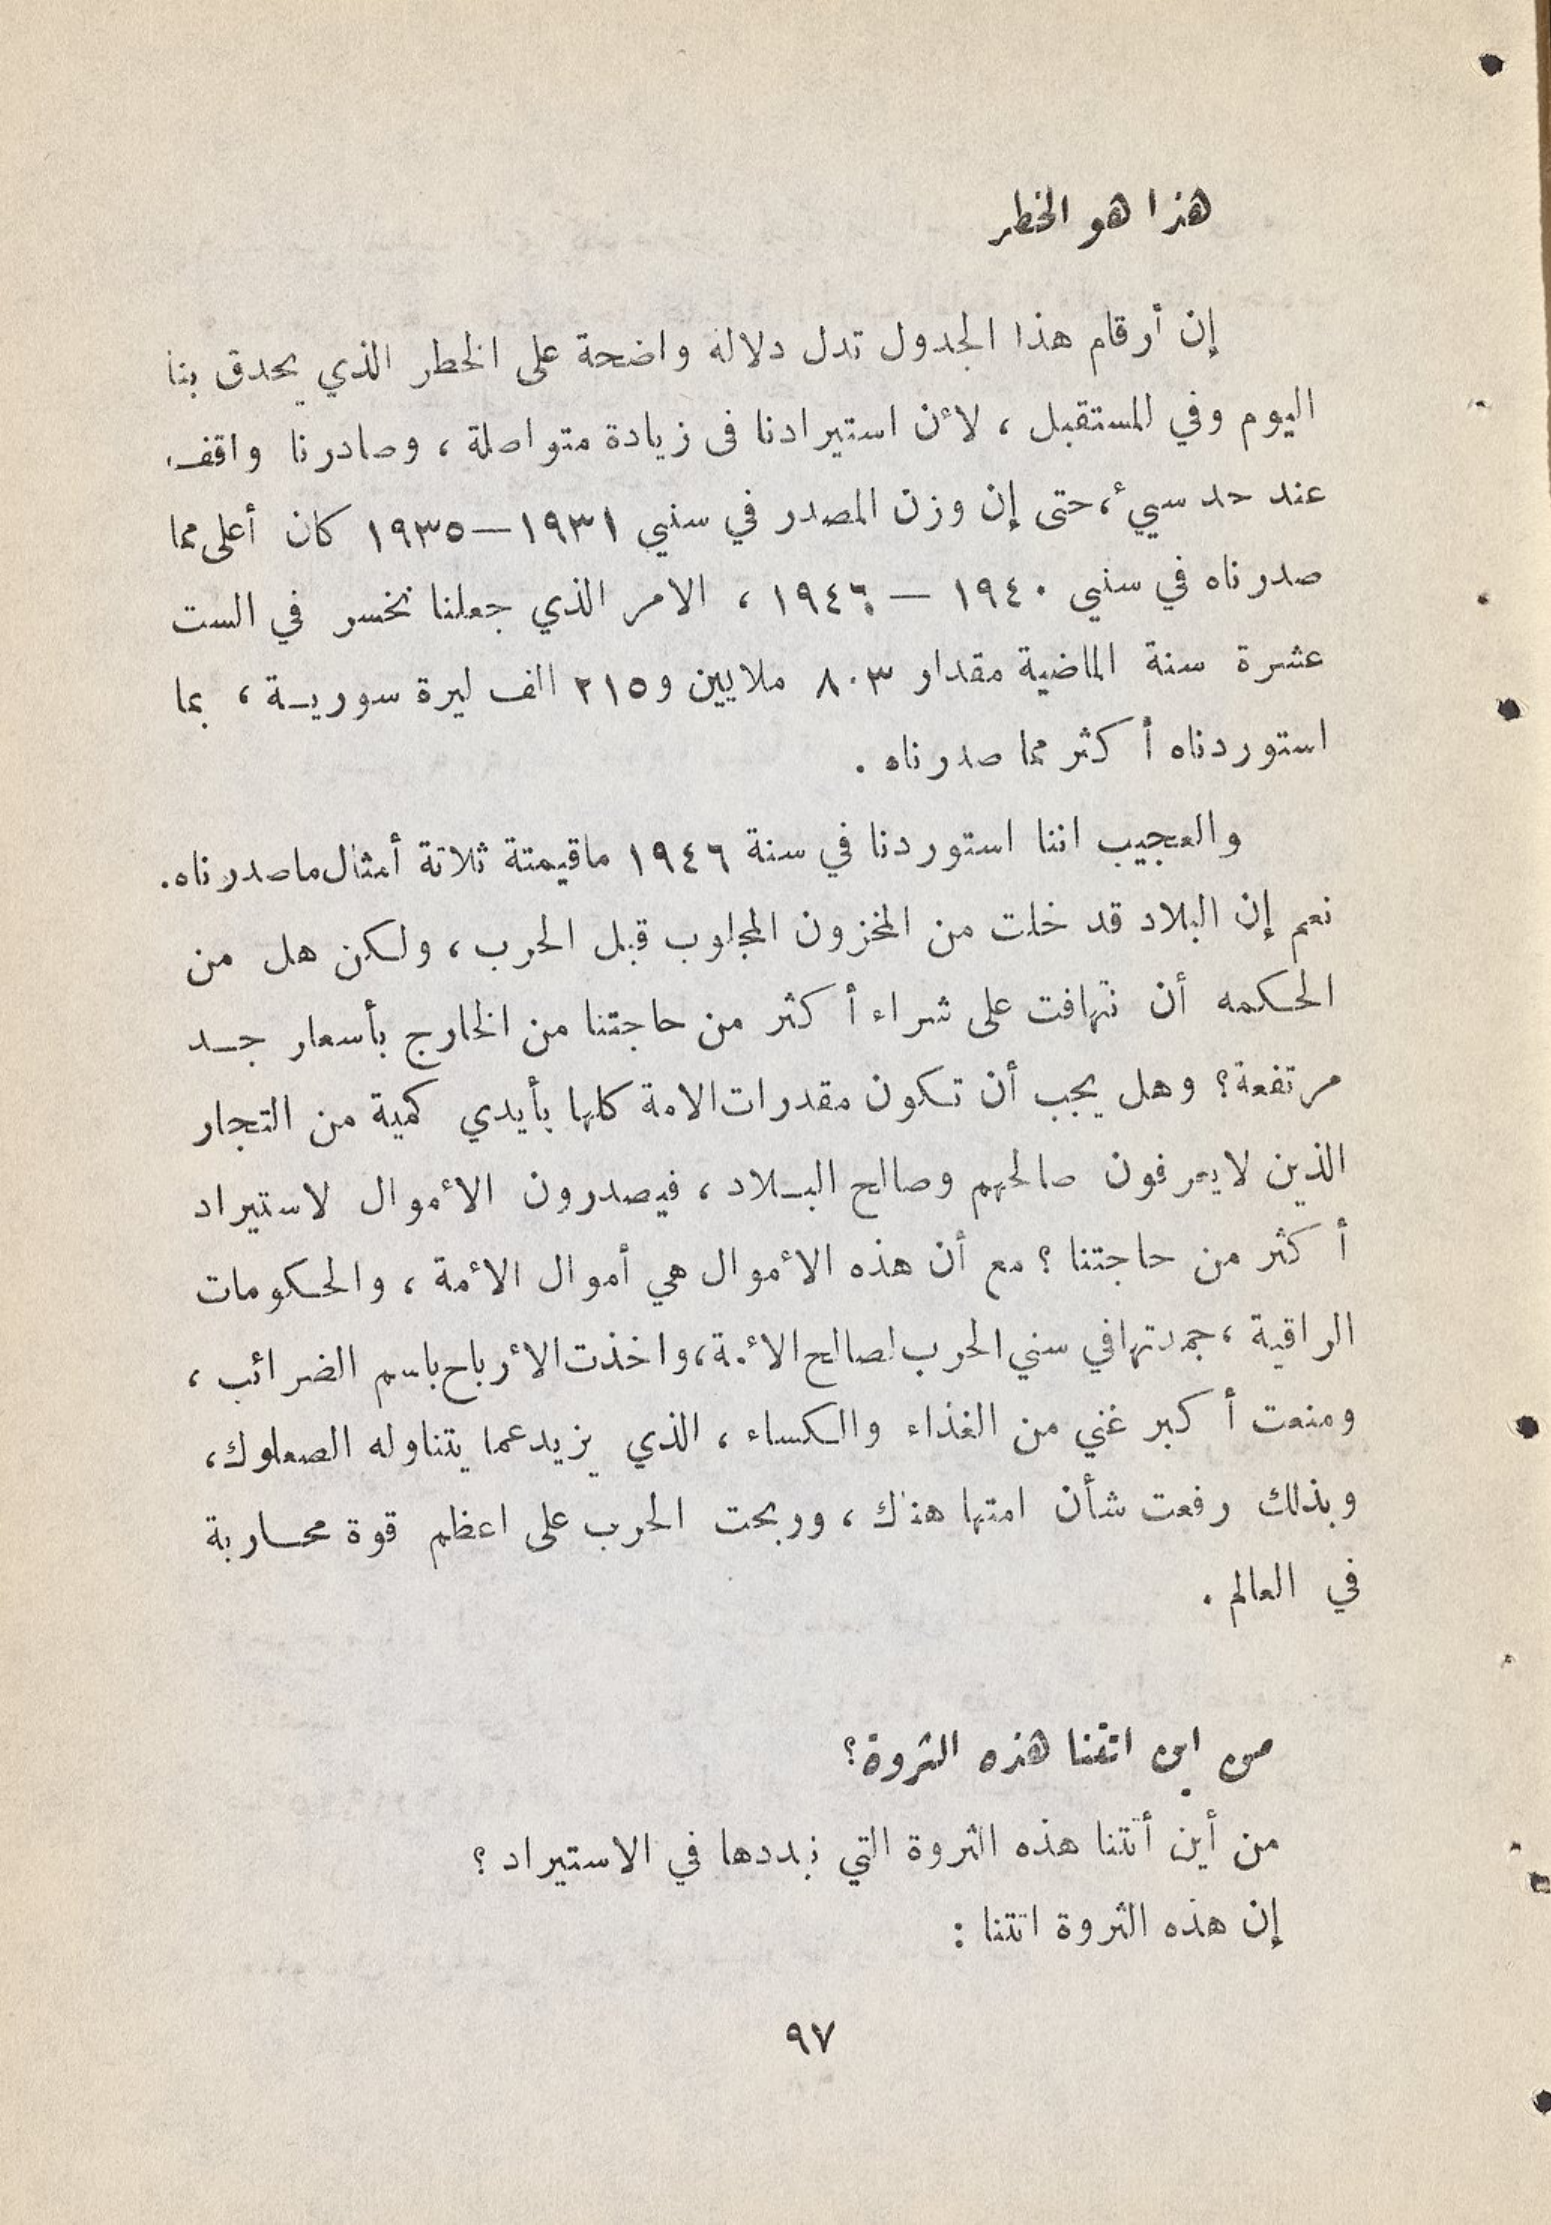 هذا هو الخطر
إن أرقام هذا الجدول تدل دلاله واضحة على الخطر الذي يحدق بنا
اليوم وفي المستقبل ، لأن استيرادنا فى زيادة متواصلة ، وصادرنا واقف
عند حد سيء ، حتى إن وزن المصدر في سني ١٩٣١–١٩٣٥ كان أعلى مما
صدرناه في سني ١٩٤٠ – ١٩٤٦ ، الامر الذي جعلنا نخسر في الست
عشرة سنة الماضية مقدار ٨٠٣ ملايين و٢١٥ الف ليرة سورية ، بما
استوردناه أكثر مما صدرناه .
والعجيب اننا استوردنا في سنة ١٩٤٦ ماقيمتة ثلاثة أمثال ماصدرناه.
نعم إن البلاد قد خلت من المخزون المجلوب قبل الحرب ، ولكن هل من
الحكمه أن نتهافت على شراء أكثر من حاجتنا من الخارج بأسعار جد
مرتفعة؟ وهل يجب أن تكون مقدرات الامة كلها بأيدي كمية من التجار
الذين لايعرفون صالحهم وصالح البلاد ، فيصدرون الأموال لاستيراد
أكثر من حاجتنا ؟ مع أن هذه الأموال هي أموال الأمة ، والحكومات
الراقية ، جمدتها في سني الحرب لصالح الأمة، واخذت الأرباح باسم الضرائب ،
ومنعت أكبر غني من الغذاء والكساء ، الذي يزيد عما يتناوله الصعلوك،
وبذلك رفعت شأن امتها هناك ، وربحت الحرب على اعظم قوة محاربة
في العالم .
من اين اتتنا هذه الثروة؟
من أين أتتنا هذه الثروة التي نبددها في الاستيراد ؟
إن هذه الثروة اتتنا :
٩٧